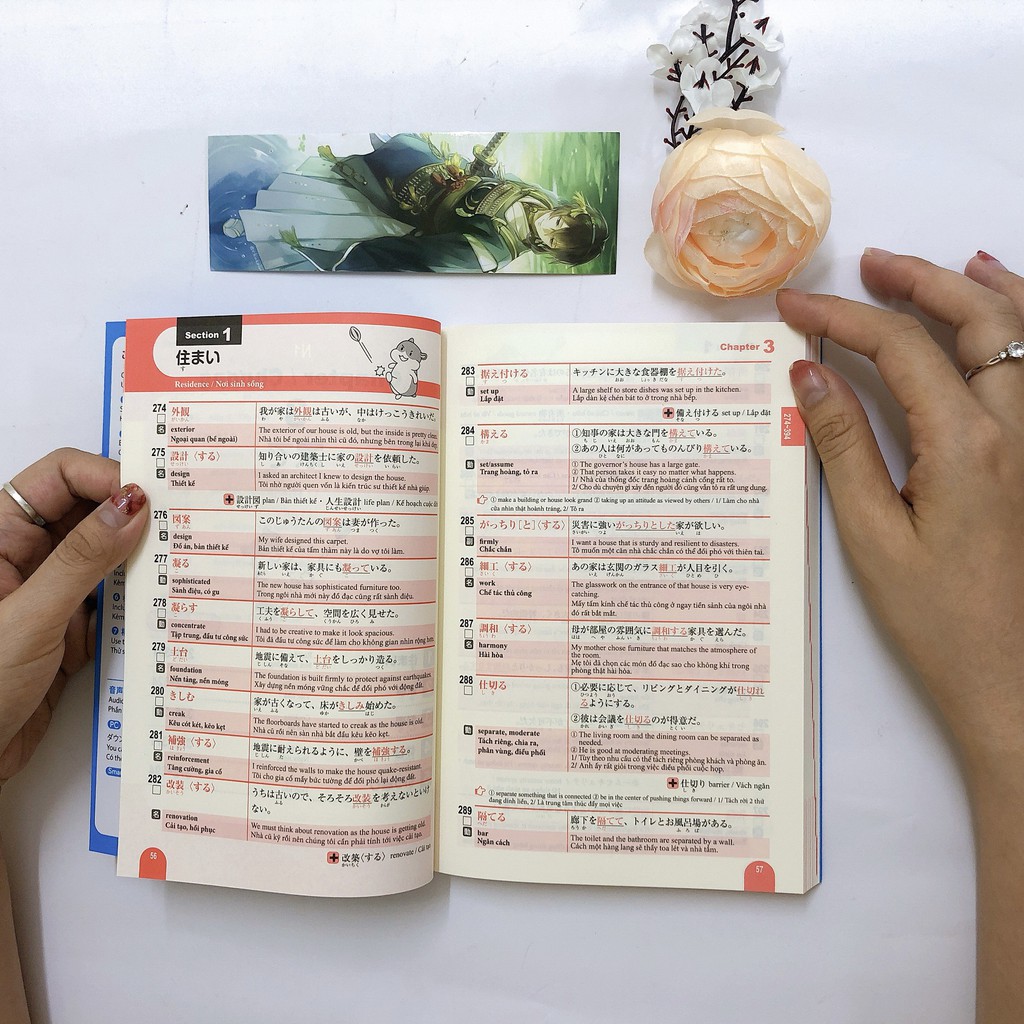 Section 1
住まい
す
Residence / Nơi sinh sống
274 外観 我が家は外観は古いが、中はけっこうきれいだ。
名 exterior The exterior of our house is old, but the inside is pretty clean.
Ngoại quan (bề ngoài) Nhà tôi bề ngoài nhìn thì cũ đó, nhưng bên trong lại khá
275 設計〈する〉 知り合いの建築士に家の設計を依頼した。
名 design I asked an architect I knew to design the house.
Thiết kế Tôi nhờ người quen vốn là kiến trúc sư thiết kế nhà giúp.
設計図 plan / Bản thiết kế・人生設計 life plan / Kế hoạch cuộc
276 図案 このじゅうたんの図案は妻が作った。
名 design My wife designed this carpet.
Đồ án, bản thiết kế Bản thiết kế của tấm thảm này là do vợ tôi làm.
277 凝る 新しい家は、家具にも凝っている。
動 sophisticated The new house has sophisticated furniture too.
Sành điệu, có gu Trong ngôi nhà mới này đồ đạc cũng rất sành điệu.
278 凝らす 工夫を凝らして、空間を広く見せた。
動 concentrate I had to be creative to make it look spacious.
Tập trung, đầu tư công sức Tôi đã đầu tư công sức để làm cho không gian nhìn rộng hơn.
279 土台 地震に備えて、土台をしっかり造る。
名 foundation The foundation is built firmly to protect against earthquakes.
Nền tảng, nền móng Xây dựng nền móng vững chắc để đối phó với động đất.
280 きしむ 家が古くなって、床がきしみ始めた。
動 creak The floorboards have started to creak as the house is old.
Kêu cót két, kẽo kẹt Nhà cũ rồi nên sàn nhà bắt đầu kêu kẽo kẹt.
281 補強〈する〉 地震に耐えられるように、壁を補強する。
名 reinforcement I reinforced the walls to make the house quake-resistant.
Tăng cường, gia cố Tôi cho gia cố mấy bức tường để đối phó lại động đất.
282 改装〈する〉 うちは古いので、そろそろ改装を考えないといけ
ない。
名 renovation We must think about renovation as the house is getting old.
Cải tạo, hồi phục Nhà cũ kỹ rồi nên chúng tôi cần phải tính tới việc cải tạo.
改築〈する〉 renovate / Cải tạo
56
Chapter 3
283 据え付ける キッチンに大きな食器棚を据え付けた。
動 set up A large shelf to store dishes was set up in the kitchen.
Lắp đặt Lắp dàn kệ chén bát to ở trong nhà bếp.
備え付ける set up / Lắp đặt
274-394
284 構える ①知事の家は大きな門を構えている。
②あの人は何があってものんびり構えている。
動 set/assume ① The governor's house has a large gate.
Trang hoàng, tỏ ra ② That person takes it easy no matter what happens.
1/ Nhà của thống đốc trang hoàng cổng rất to.
2/ Cho dù chuyện gì xảy đến người đó cũng vẫn tỏ ra rất ung dung.
① make a building or house look grand ② taking up an attitude as viewed by others / 1/ Làm cho nhà
cửa nhìn thật hoành tráng, 2/ Tỏ ra
285 がっちり[と]〈する〉 災害に強いがっちりとした家が欲しい。
副 firmly I want a house that is sturdy and resilient to disasters.
Chắc chắn Tôi muốn một căn nhà chắc chắn có thể đối phó với thiên tai.
286 細工〈する〉 あの家は玄関のガラス細工が人目を引く。
名 work The glasswork on the entrance of that house is very eye-
Chế tác thủ công catching.
Mấy tấm kính chế tác thủ công ở ngay tiền sảnh của ngôi nhà
đó rất bắt mắt.
287 調和〈する〉 母が部屋の雰囲気に調和する家具を選んだ。
名 harmony My mother chose furniture that matches the atmosphere of
Hài hòa the room.
Mẹ tôi đã chọn các món đồ đạc sao cho không khí trong
phòng thật hài hòa.
288 仕切る ①必要に応じて、リビングとダイニングが仕切れ
るようにする。
②彼は会議を仕切るのが得意だ。
動 separate, moderate ① The living room and the dining room can be separated as
Tách riêng, chia ra, needed.
phân vùng, điều phối ② He is good at moderating meetings.
1/ Tùy theo nhu cầu có thể tách riêng phòng khách và phòng ăn.
2/ Anh ấy rất giỏi trong việc điều phối cuộc họp.
仕切り barrier / Vách ngăn
① separate something that is connected ② be in the center of pushing things forward / 1/ Tách rời 2 thứ
đang dính liền, 2/ Là trung tâm thúc đẩy mọi việc
289 隔てる 廊下を隔てて、トイレとお風呂場がある。
動 bar The toilet and the bathroom are separated by a wall.
Ngăn cách Cách một hàng lang sẽ thấy toa lét và nhà tắm.
57